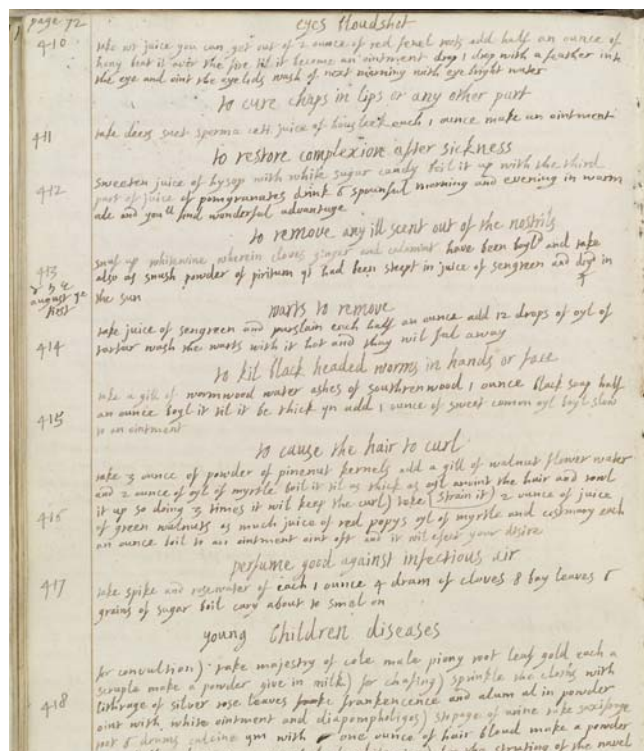 page 72
eyes bloudshot
410
take wt juice you can get out of 2 ounce of red fenel roots add half an ounce of
hony heat it over the fire til it become an ointment drop 1 drop with a feather into
the eye and oint the eyelids wash of next morning with eyebright water
to cure chaps in lips or any other part
411
take deers suet sperma ceti juice of housleek each 1 ounce make an ointment
to restore complexion after sickness
412
sweeten juice of hysop with white sugar candy boil it up with the third
part of juice of pomgranates drink 6 spoonful morning and evening in warm
ale and you'll find wonderful advantage
to remove any ill scent out of the nostrils
413
snuf up whitewine wherein cloves ginger and calamint have been boyld and take
also as snush powder of piritum yt had been steept in juice of sengreen and dryd in
the sun
august ye
first
warts to remove
414
take juice of sengreen and purslain each half an ounce add 12 drops of oyl of
tartar wash the warts with it hot and thay wil fal away
to kil black headed worms in hands or face
415
take a gill of wormwood water ashes of southrenwood 1 ounce black soap half
an ounce boyl it til it be thick yn add 1 ounce of sweet comon oyl boyl slow
to an ointment
to cause the hair to curl
416
take 3 ounce of powder of pinenut kernels add a gill of walnut flower water
and 2 ounce of oyl of myrtle boil it til as thick as oyl anoint the hair and rowl
it up so doing 3 times it wil keep the curl) take (strain it) 2 ounce of juice
of green walnuts as much juice of red popys oyl of myrtle and costmary each
an ounce boil to an ointment oint oft and it wil efect your desire
perfume good against infectious air
417
take spike and rosewater of each 1 ounce 4 dram of cloves 8 bay leaves 6
grains of sugar boil cary about to smel on
young children diseases
418
for convultion) take majestry of cole male piony root leaf gold each a
scruple make a powder give in milk) for chafing) sprinkle the cloths with
lithrage of silver rose leaves frankencence and alum al in powder
oint with white ointment and diapompholigos) stopage of urine take saxifrage
root 6 drams calcine ym with one ounce of hair bloud make a powder